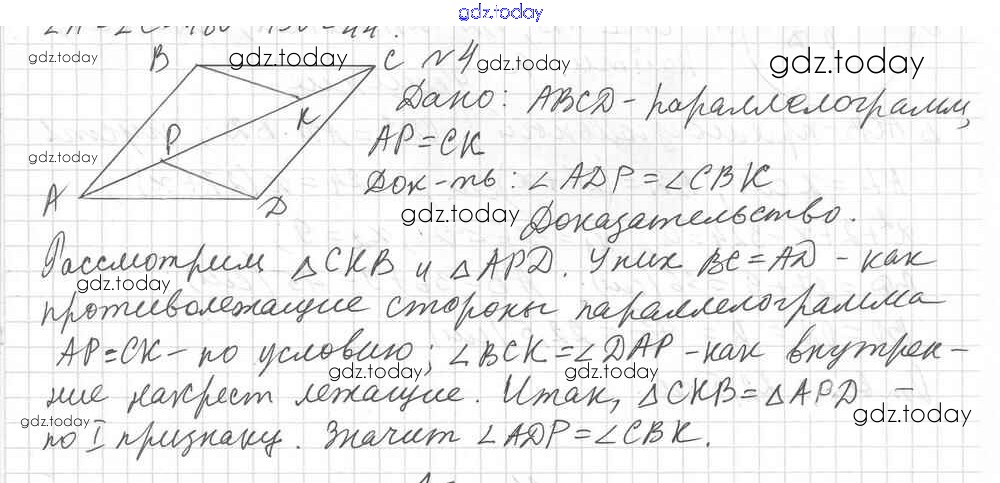 gdz.today
∠A = ∠C = 180° - 136° = 44°.
gdz.today
B gdz.today C №4 gdz.today gdz.today
Дано: ABCD - параллелограмм,
K
P AP = CK
gdz.today
Док-ть: ∠ADP = ∠CBK
A D
gdz.today Доказательство.
Рассмотрим △CKB и △APD. У них BC = AD - как
gdz.today
противолежащие стороны параллелограмма
AP = CK - по условию; ∠BCK = ∠DAP - как внутрен-
gdz.today gdz.today
ние накрест лежащие. Итак, △CKB = △APD -
gdz.today gdz.today
по I признаку. Значит ∠ADP = ∠CBK.